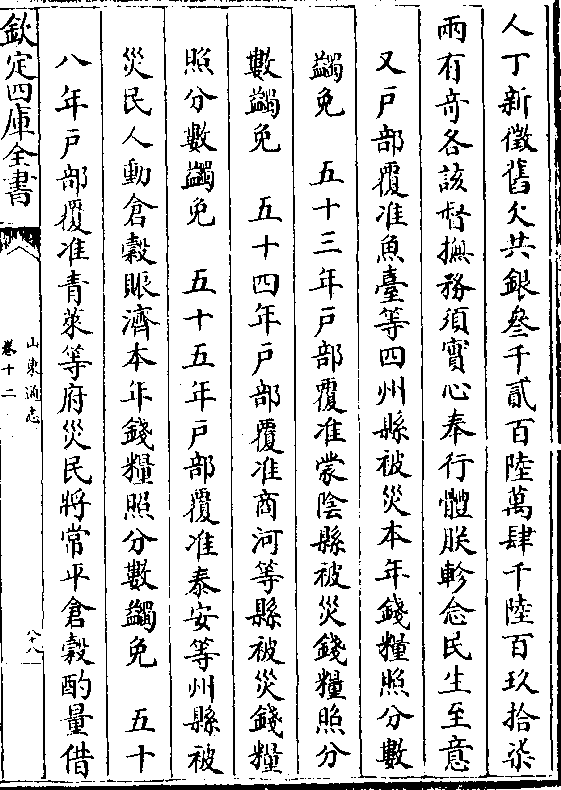 人丁新徵舊欠共銀叄千貳百陸萬肆千陸百玖拾柒
兩有奇各該督撫務須實心奉行體朕軫念民生至意
又戸部覆准魚臺等四州縣被災本年錢糧照分數
蠲免　五十三年戸部覆准蒙陰縣被災錢糧照分
數蠲免　五十四年戸部覆准商河等縣被災錢糧
照分數蠲免　五十五年戸部覆准泰安等州縣被
災民人動倉穀賑濟本年錢糧照分數蠲免　五十
八年戸部覆准青萊等府災民將常平倉穀酌量借
欽定四庫全書
山東通志
卷十二